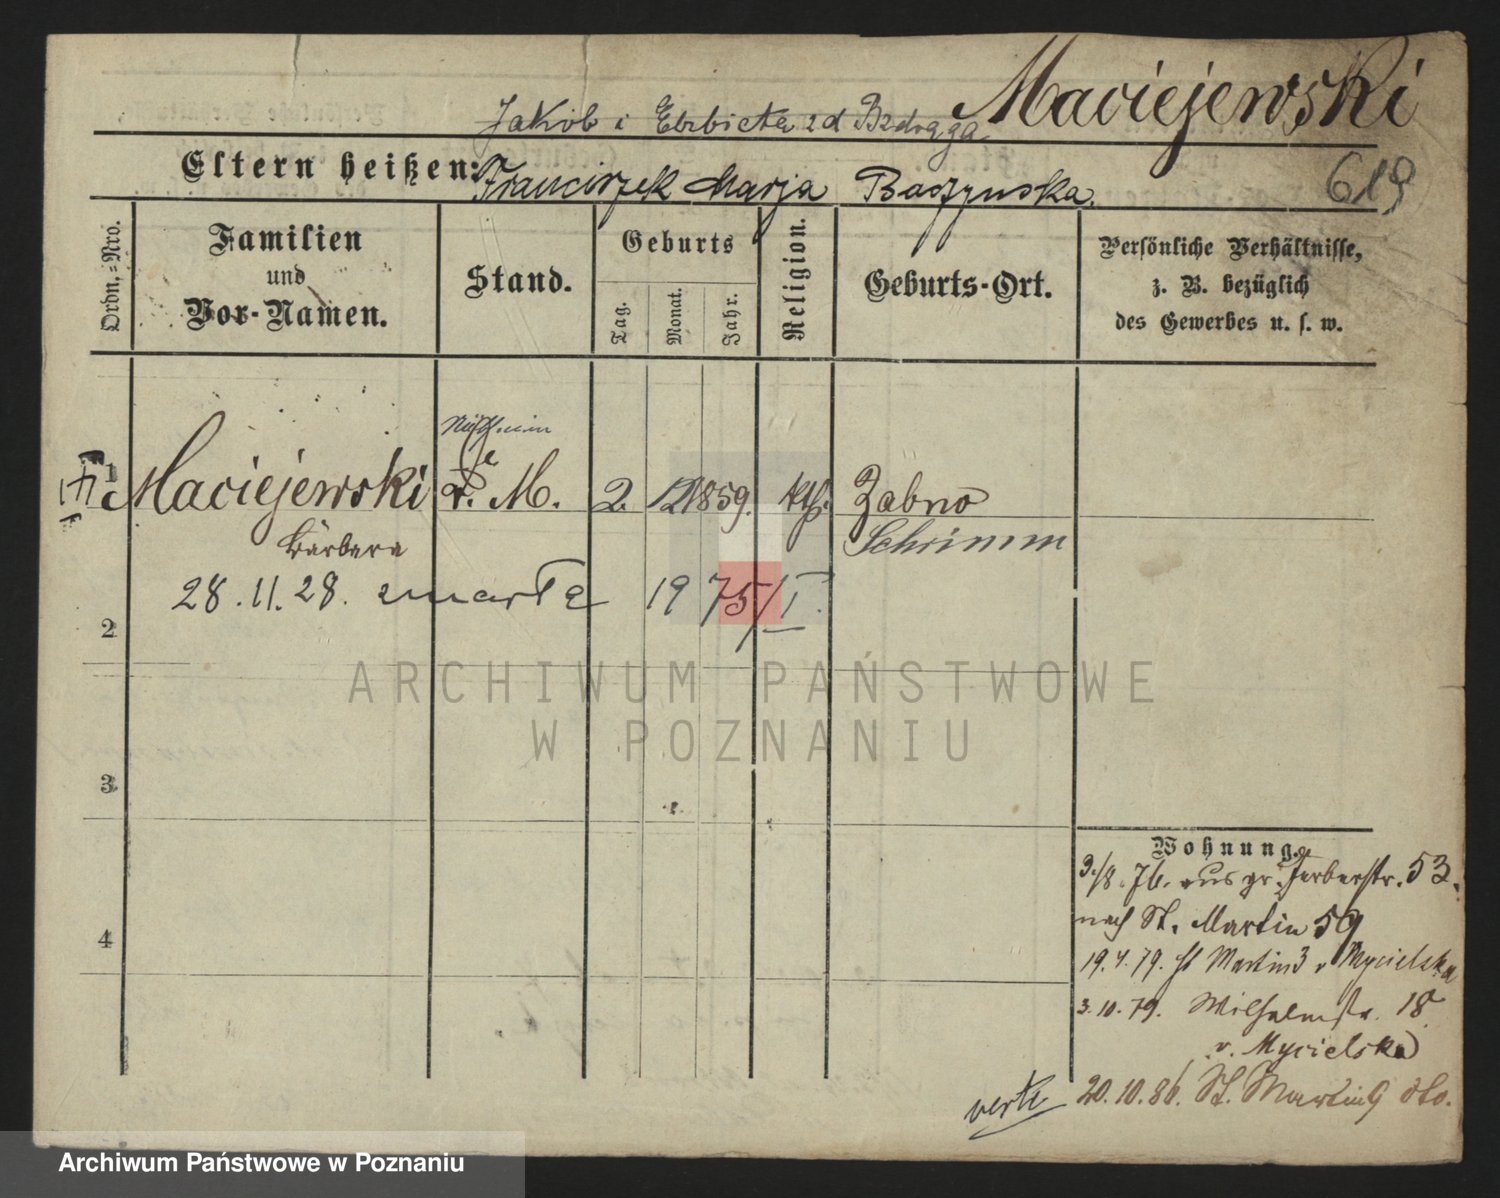 Maciejewski
Jakób i Elzbieta zd Bzdręga
Eltern heißen: Franciszek Marja Baszynska.
619
Ordn.=Nro.
Familien
und
Vor-Namen.
Stand.
Geburts
Tag.
Monat.
Jahr.
Religion.
Geburts-Ort.
Persönliche Verhältnisse,
z. B. bezüglich
des Gewerbes u. s. w.
1 Maciejewski M. 2. 12 1859. kth. Zabno
Barbara Schrimm
28.11.28. zmarła 1975/I.
2
3
4
Wohnung.
3./8. 76. aus gr. Gerberstr. 53.
nach St. Martin 59
19.4.79. St Martin 3 v Mycielska
3.10.79. Wilhelmstr. 18
v. Mycielska
20.10.86. St. Martin 9 dto.
verte
ARCHIWUM PAŃSTWOWE
W POZNANIU
Archiwum Państwowe w Poznaniu